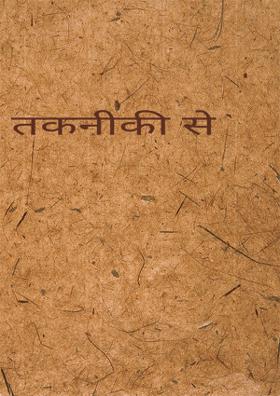 तकनीकी से